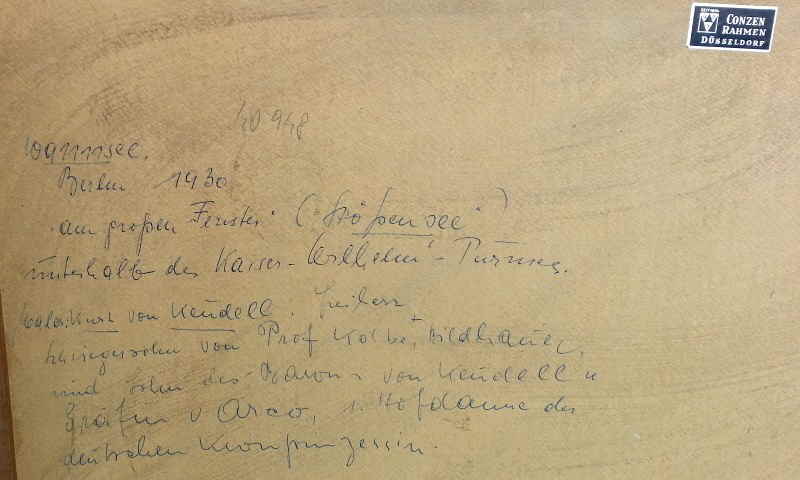 CONZEN
RAHMEN
DÜSSELDORF
40948
Wannsee.
Berlin 1930
am großen Fenster (Stößensee)
unterhalb des Kaiser-Wilhelm-Turmes.
Maler: Kurt von Keudell. Freiherr
von Prof Kolbe, Bildhauer,
und Sohn des Barons von Keudell u
Gräfin v Arco, Hofdame der
deutschen Kronprinzessin.